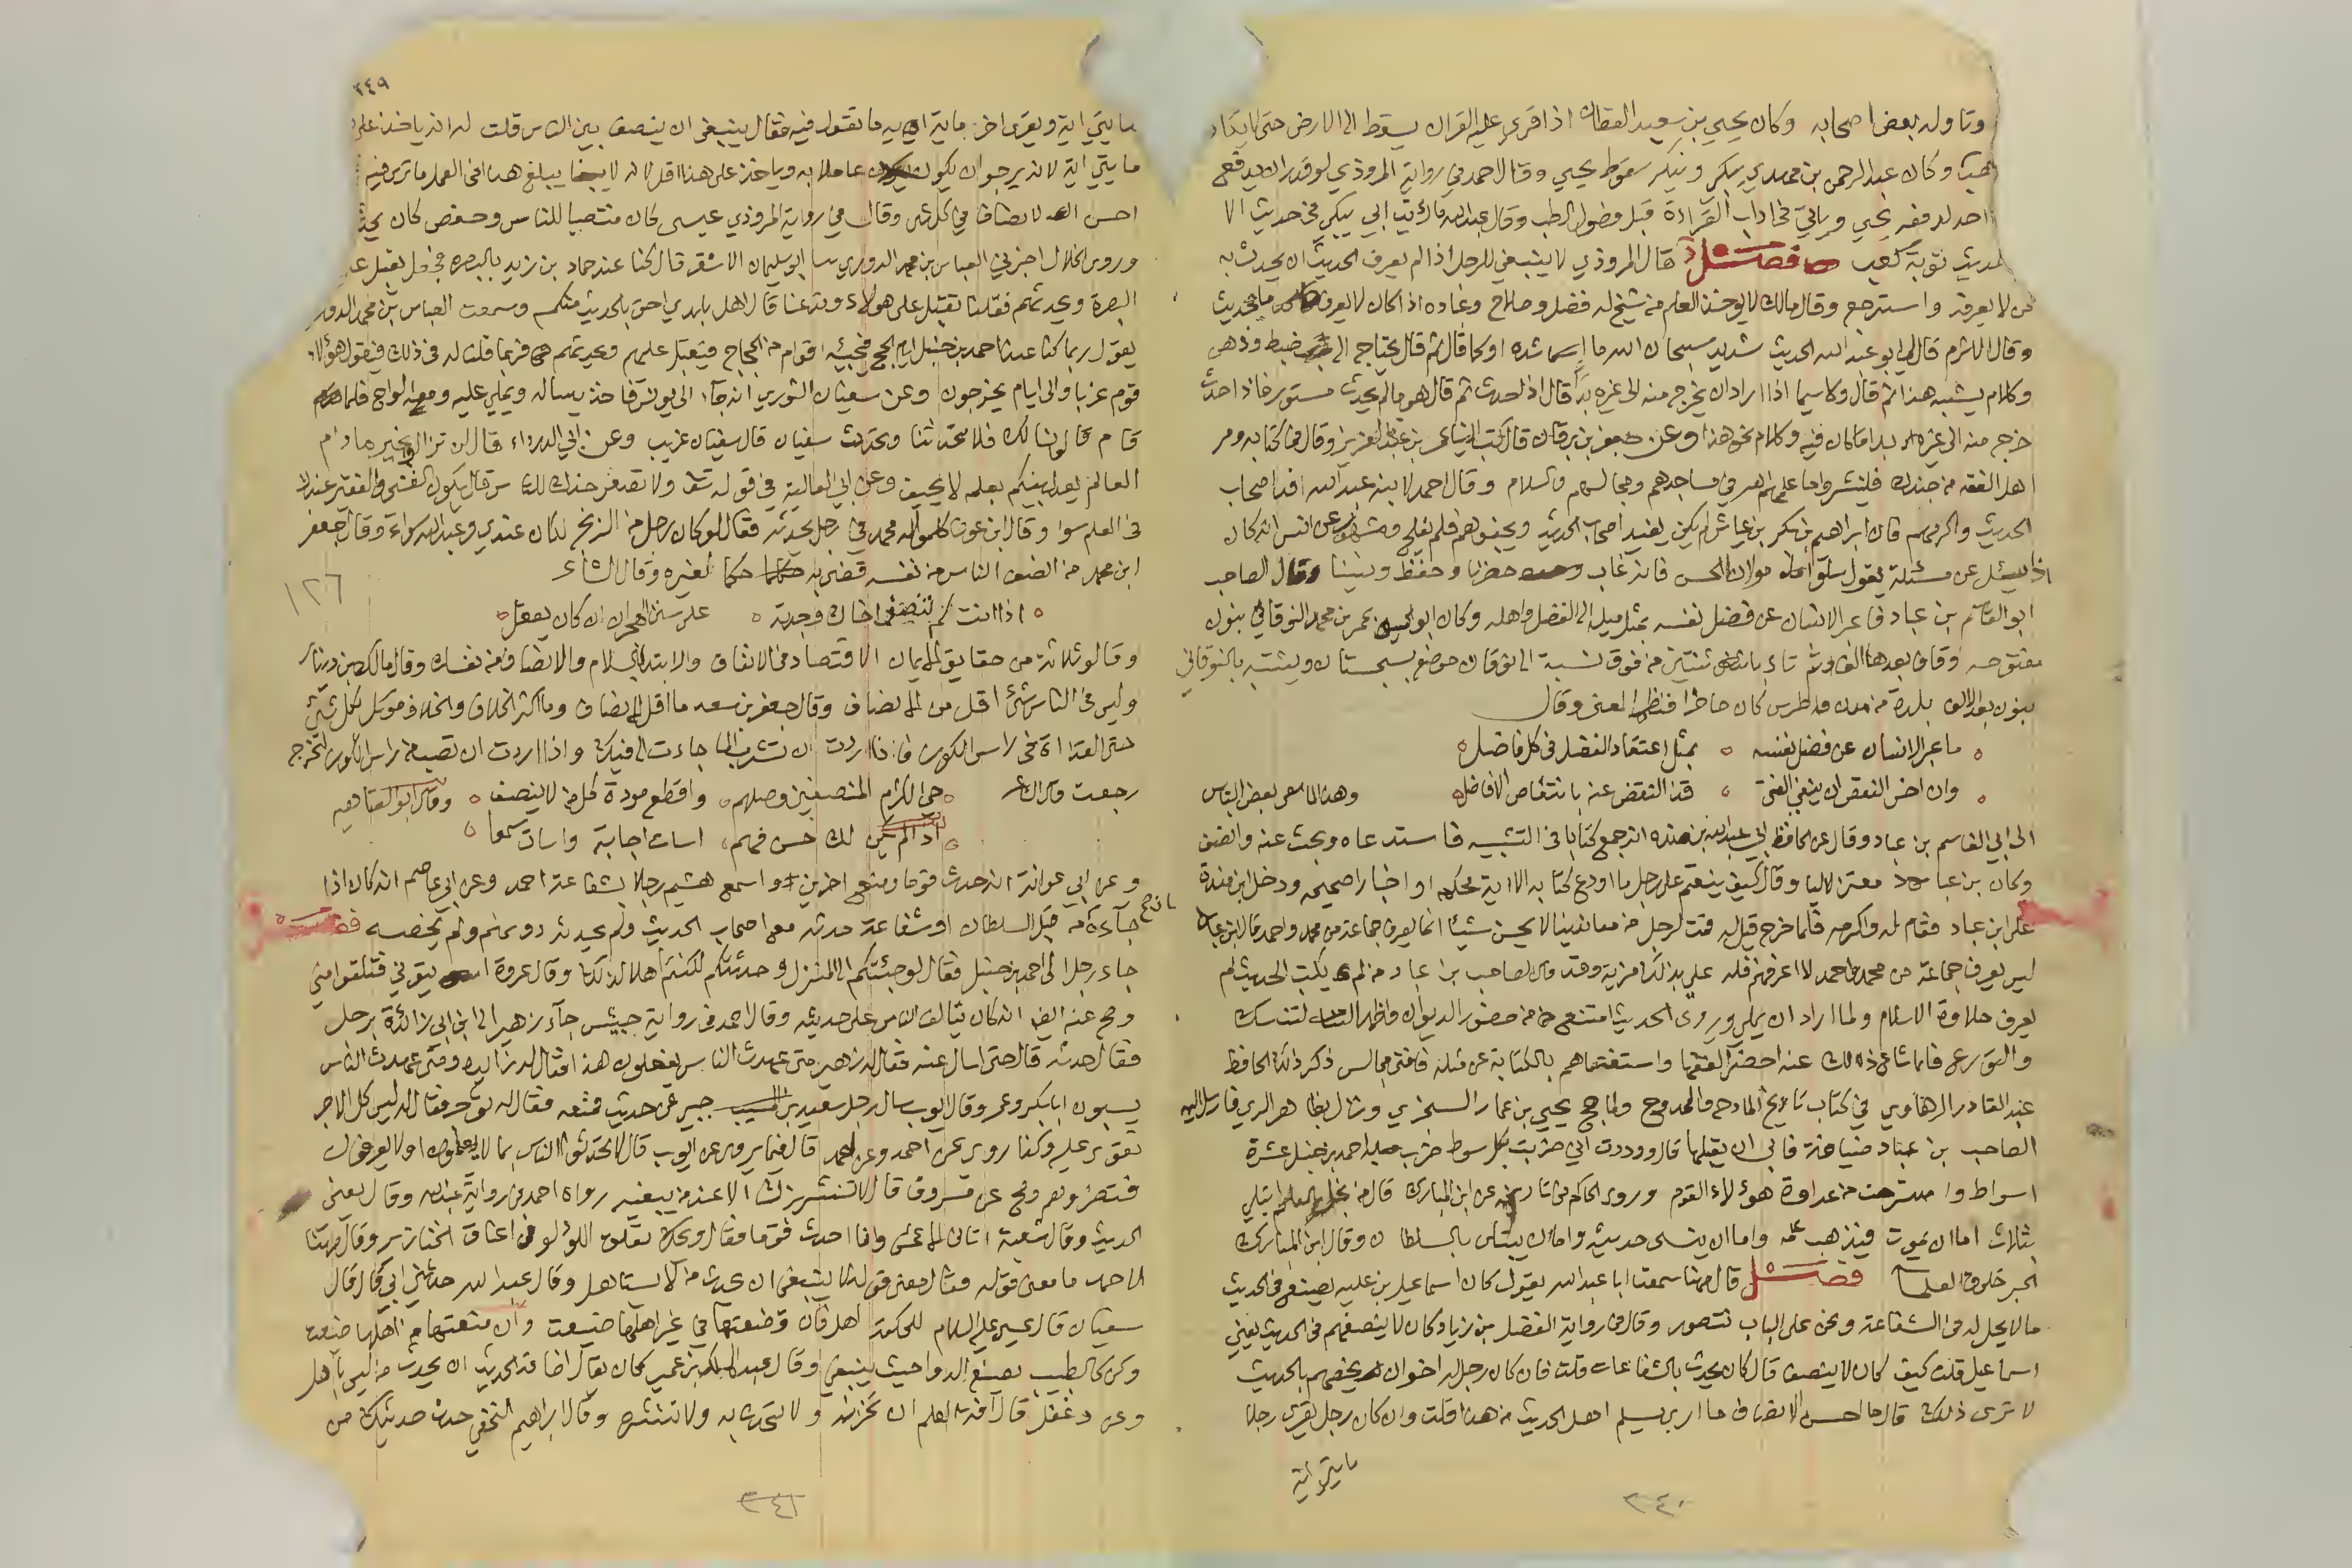 وتاوله بعض اصحابه وكان يحيى بن سعيد القطان اذا قرى عليه القران يسقط الى الارض حتى
وكان عبد الرحمن بن مهدي ينكر سقوط يحيى وقال احمد في رواية المروذي لو قدر ان يدفع
احد لدفعه يحيى وياتي في اداب القراءة قبل فصول الطب وقال عبد الله ما رايت ابي يبكي في حديث الا
حديث توبة كعب فصل قال المروذي لا ينبغي للرجل اذا لم يعرف الحديث ان يحدث به
لا يعرفه واسترجع وقال مالك لا يوخذ العلم من شيخ له فضل وصلاح وعباده اذا كان لا يعرف ما يحدث
وقال الاثرم قال لي ابو عبد الله الحديث شديد سبحان الله ما اشده او كما قال ثم قال يحتاج الى ضبط وذهن
وكلام يشبه هذا ثم قال ولا سيما اذا اراد ان يخرج منه الى غيره قال اذا حدث ثم قال هو ما لم يحدث مستور فاذا حدث
خرج منه الى غيره بدا ما كان فيه وكلام نحو هذا وعن جعفر بن برقان قال كتب الينا عمر بن عبد العزيز وقال في كتابه ومر
اهل الفقه من جندك فلينشروا ما علمهم الله في مساجدهم ومجالسهم والسلام وقال احمد لابنه عبد الله افد اصحاب
الحديث واكرمهم فان ابراهيم بن بكر بن عياش لم يكن يفيد اصحاب الحديث ويجفوهم فلم يفلح وعن انس انه كان
اذا سئل عن مسئلة يقول سلوا مولانا الحسن فانه غاب وحضرنا وحفظ ونسينا وقال الصاحب
ابو القاسم بن عباد ما عبر الانسان عن فضل نفسه بمثل ميله الى الفضل واهله وكان ابو الحسن عمر بن محمد النوقاني بنون
مفتوحه وقاف بعدها الف وثم تاء باثنتين من فوق نسبة الى نوقان موضع بسجستان ويشتبه بالنوقاني
بنون بعد الالف بلدة من مدن طوس كان حاضرا فنظم المعنى وقال
ما عبر الانسان عن فضل نفسه بمثل اعتقاد الفضل في كل فاضل
وان اخس النقص ان ينفي الفتى قذا النقص عنه بانتقاص الافاضل وهذا لما سعى بعض الناس
الى ابي القاسم بن عباد وقال عن الحافظ ابي عبد الله بن منده انه جمع كتابا في التشبيه فاستدعاه وبحث عنه وانصف
وكان بن عباد معتزليا وقال كيف ينقم على رجل ما اودع كتابه الا اية محكمه او اخبارا صحيحه ودخل ابن مندة
على ابن عباد فقام له واكرمه فلما خرج قيل له قمت لرجل من معاندينا لا يحسن شيئا انما يعرف جماعة من محمد واحمد فقال ابن عباد
ليس يعرف جماعة من محمد واحمد لا اعرفهم فله علي بذلك مزية وقد قال الصاحب بن عباد من لم يكتب الحديث لم
يعرف حلاوة الاسلام ولما اراد ان يملي ويروي الحديث امتنع من حضور الديوان واظهر التنسك
والتورع فلما شاع ذلك عنه احضر الفقها واستفتاهم بالكتابة عن مثله فافتى مجالس ذكر ذلك الحافظ
عبد القادر الرهاوي في كتاب تاريخ المادح والممدوح ولما حج يحيى بن عمار السجزي ونزل بظاهر الري فارسل اليه
الصاحب بن عباد ضيافة فابى ان يقبلها قال ووددت اني ضربت بكل سوط ضرب احمد بن حنبل عشرة
اسواط واسترحت من عداوة هؤلاء القوم وروى الحاكم في تاريخه عن ابن المبارك قال من بخل بالعلم ابتلي
بثلاث اما ان يموت فيذهب علمه واما ان ينسى حديثه واما ان يبتلى بالسلطان وقال ابن المبارك
الحبر خلوق العلما فصل قال مهنا سمعت ابا عبد الله يقول كان اسماعيل بن عليه يصنع في الحديث
ما لا يحل له في الشفاعة ونحن على الباب نتصور وقال في رواية الفضل بن زياد كان لا ينصفهم في الحديث يعني
اسماعيل قلت كيف كان لا ينصف قال كان يحدث بالشفاعات قلت فان كان رجل له اخوان يخصهم بالحديث
لا ترى ذلك قال ما احسن الانصاف ما ارى يسلم اهل الحديث من هذا قلت وان كان رجل يقرى رجلا
مايتي اية
٣٤٠
٣٤٩
مايتي اية ويقرى اخر ماية اية ما تقول فيه فقال ينبغي ان ينصف بين الناس قلت له انه ياخذ على
مايتي اية لانه يرجو ان يكون عاملا به وياخذ على هذا اقل لانه لا يبلغ هذا في العمل ما ترى فيه
احسن الانصاف في كل شي وقال في رواية المروذي عيسى كان منتصبا للناس وحفص كان
وروى الخلال اخبرني العباس بن محمد الدوري سا ابو سليمان الاشقر قال كنا عند حماد بن زيد بالبصره فجعل يقبل على
البصرة ويحدثهم فقلنا تقبل على هولاء وتدعنا قال اهل بلدي احق بالحديث منكم وسمعت العباس بن محمد الدوري
يقول ربما كنا عند احمد بن حنبل ايام الحج فيجيئه اقوام من الحجاج فيقبل عليهم ويحدثهم فربما قلنا له في ذلك فيقول هؤلاء
قوم غربا والى ايام يخرجون وعن سفيان الثوري انه جاء الى يونس فاخذ يساله ويملي عليه ومعه الواح فلما
قام قالوا ذلك فلا تحدثنا وتحدث سفيان قال سفيان غريب وعن ابي الدرداء قال لن تزالوا بخير ما دام
العالم يعدل بينكم بعلمه لا يحيف وعن ابي العالية في قوله تعالى ولا تصعر خدك للناس قال يكون الغني والفقير عندك
في العلم سوا وقال ابن عون كلموا محمدا في رجل يحدثه فقال لو كان رجل من الزنج لكان عندي وعبد الله سواء وقال جعفر
ابن محمد من انصف الناس من نفسه قضى به حكما لغيره وقال الشاعر
١٢٦
اذا انت لم تنصف اخاك وجدته على سنن الهجران ان كان يعقل
وقالو ثلاثة من حقايق الايمان الاقتصاد في الانفاق والابتدا بالسلام والانصاف من نفسك وقال مالك بن دينار
وليس في الناس شي اقل من الانصاف وقال جعفر بن سعد ما اقل الانصاف وما اكثر الخلاف والخلاف موكل بكل شي
حتى القذاة في راس الكوز فاذا اردت ان تشرب الما جاءت الى فيك واذا اردت ان تصب من راس الكوز لتخرج
رجعت وقال الشاعر حي الكرام المنصفين وصلهم واقطع مودة كل من لا ينصف وقال ابو العتاهيه
اذا لم يكن لك حسن فهم اسات اجابة واسات سمعا
وعن ابي عوانة انه حدث قوما ومنع اخرين واسمع هشيم رجلا بشفاعة احمد وعن ابي عاصم انه كان اذا
جاءه من قبل السلطان او شفاعة حدثه مع اصحاب الحديث ولم يحدثه دونهم ولم يخصه فصل
جاء رجل الى احمد بن حنبل فقال لو جئتكم الى المنزل وحدثتكم لكنتم اهلا لذلك وقال عروة ايتوني فتلقوا مني
وصح عنه ايضا انه كان يتالف الناس على حديثه وقال احمد في رواية حبيش جاء زهير الى ابن ابي زائدة برجل
فقال حدثه قال حتى اسال عنه فقال له زهير متى عهدت الناس يفعلون هذا فقال له زائدة ومتى عهدت الناس
يسبون ابا بكر وعمر وقال ايوب سال رجل سعيد بن جبير عن حديث فمنعه فقال له توجر فقال له ليس كل الاجر
نقوى عليه وكذا روى عن احمد قال فيما يروى عن ايوب قال لا تحدثوا الناس بما لا يعلمون او لا يعرفون
فتضروهم وصح عن مسروق قال لا تنشر بزك الا عند من يبغيه رواه احمد من رواية عبد الله وقال يعني
الحديث وقال شعبة اتاني الاعمش وانا احدث قوما فقال ويحك تعلق اللولو في اعناق الخنازير وقال مهنا
لاحمد ما معنى قوله فقال معنى قوله لا ينبغي ان يحدث من لا يستاهل وقال عبد الله حدثني ابي قال قال
سفيان قال عيسى عليه السلام للحكمة اهل فان وضعتها في غير اهلها ضيعت وان منعتها من اهلها ضيعت
وكن كالطبيب يضع الدوا حيث ينبغي وقال عبد الملك بن عمير كان يقال اضاعة الحديث ان يحدث من ليس باهل
وعن دغفل قال افة العلم ان تخزنه ولا تحدث به ولا تنشره وقال ابراهيم النخعي حدث حديثك من
٣٤١